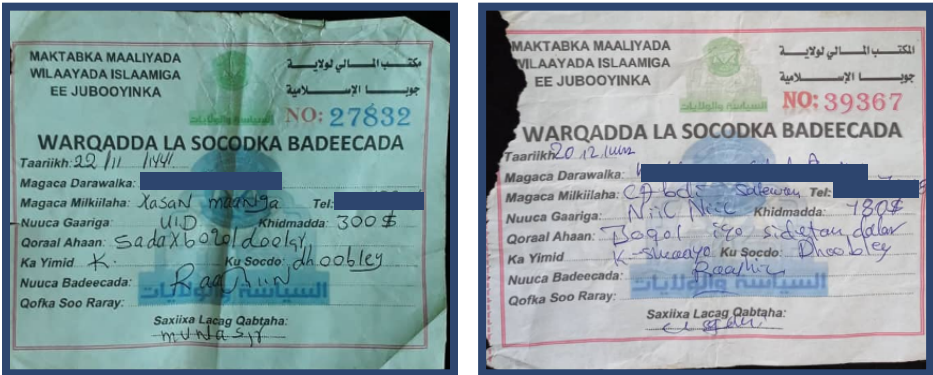 MAKTABKA MAALIYADA
WILAAYADA ISLAAMIGA
EE JUBOOYINKA
مكتب المالي لولاية
جوبا الإسلامية
السياسة والولايات
NO: 27832
WARQADDA LA SOCODKA BADEECADA
Taariikh: 22/11 /1441
Magaca Darawalka:
Magaca Milkiilaha: Xasan maaniga Tel:
Nuuca Gaariga: UID Khidmadda: 300$
Qoraal Ahaan: Sadax boqol doolar
Ka Yimid K. Ku Socdo: dhoobley
Nuuca Badeecada: Raashiin
السياسة والولايات
Qofka Soo Raray:
Saxiixa Lacag Qabtaha:
munasir
MAKTABKA MAALIYADA
WILAAYADA ISLAAMIGA
EE JUBOOYINKA
المكتب المالي لولاية
جوبا الإسلامية
السياسة والولايات
NO: 39367
WARQADDA LA SOCODKA BADEECADA
Taariikh: 20 12
Magaca Darawalka:
Magaca Milkiilaha: Cabdi Tel:
Nuuca Gaariga: NiiC NiiC Khidmadda: 180$
Qoraal Ahaan: Boqol iyo sidetan dolar
Ka Yimid K-smaayo Ku Socdo: Dhoobley
Nuuca Badeecada: Raashin
السياسة والولايات
Qofka Soo Raray:
Saxiixa Lacag Qabtaha: